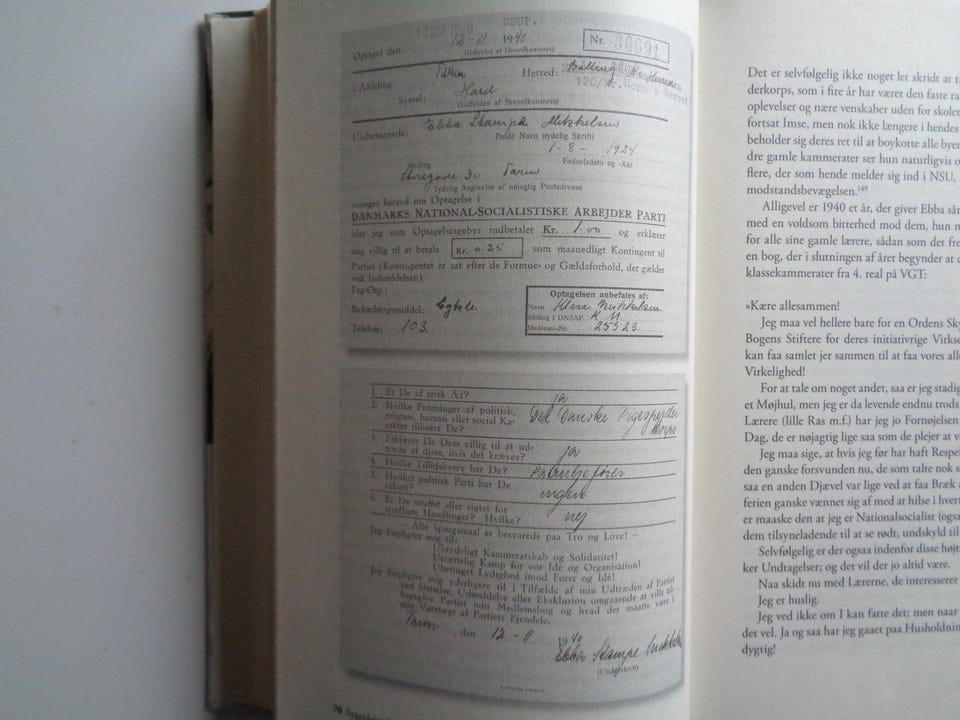 NSUP.
Optaget den 12-11 1940 Nr. 30691
(Udfyldes af Hovedkontoret)
i Afdeling Tarm Herred: Bølling
Syssel: Hard
(Udfyldes af Sysselkontoret)
Undertegnede: Ebba Stampe Mikkelsen
Fulde Navn (tydelig Skrift)
1-8- 1924
Stilling Fødselsdato og -Aar
Storegade 30 Tarm
Tydelig Angivelse af nøjagtig Postadresse
ansøger herved om Optagelse i
DANMARKS NATIONAL-SOCIALISTISKE ARBEJDER PARTI
idet jeg som Optagelsesgebyr indbetaler Kr. 1.00 og erklærer
mig villig til at betale Kr. 0.25 som maanedligt Kontingent til
Partiet (Kontingentet er sat efter de Formue- og Gældsforhold, der gælder
ved Indmeldelsen).
Fag-Org.:
Befordringsmiddel: Cykle
Telefon: 103.
Optagelsen anbefales af:
Navn Mikkelsen
Stilling i DNSAP
Medlems-Nr. 25523
1. Er De af arisk Æt? ja
2. Hvilke Foreninger af politisk,
religiøs, human eller social Ka-
rakter tilhører De? Det Danske Pigespejder Korps
3. Erklærer De Dem villig til at ud-
træde af disse, hvis det kræves? ja
4. Hvilke Tillidshverv har De? Patruljefører
5. Hvilket politisk Parti har De
tilhørt? ingen
6. Er De straffet eller sigtet for
strafbare Handlinger? Hvilke? nej
— Alle Spørgsmaal er besvarede paa Tro og Love! —
Jeg forpligter mig til:
Ubrydeligt Kammeratskab og Solidaritet!
Utrættelig Kamp for vor Idé og Organisation!
Ubetinget Lydighed imod Fører og Idé!
Jeg forpligter mig yderligere til i Tilfælde af min Udtræden af Partiet
ved Slettelse, Udmeldelse eller Eksklusion omgaaende at ville til-
bagegive Partiet min Medlemsbog og hvad der maatte være i
min Varetægt af Partiets Ejendele.
Tarm, den 12-11 1940
Ebba Stampe Mikkelsen
(Underskrift)
76
Det er selvfølgelig ikke noget let skridt at
derkorps, som i fire år har været den faste
oplevelser og nære venskaber uden for skole
fortsat Imse, men nok ikke længere i hendes
beholder sig deres ret til at boykotte alle
dre gamle kammerater ser hun naturligvis
flere, der som hende melder sig ind i NSU,
modstandsbevægelsen.149
Alligevel er 1940 et år, der giver Ebba
med en voldsom bitterhed mod dem, hun
for alle sine gamle lærere, sådan som det
en bog, der i slutningen af året begynder at
klassekammerater fra 4. real på VGT:
»Kære allesammen!
Jeg maa vel hellere bare for en Ordens
Bogens Stiftere for deres initiativrige
kan faa samlet jer sammen til at faa vores
Virkelighed!
For at tale om noget andet, saa er jeg
et Møjhul, men jeg er da levende endnu trods
Lærere (lille Ras m.f.) har jeg jo Fornøjelsen
Dag, de er nøjagtig lige saa som de plejer at
Jeg maa sige, at hvis jeg før har haft
den ganske forsvunden nu, de som talte nok
saa en anden Djævel var lige ved at faa Bræk
ferien ganske vænnet sig af med at hilse i
er maaske den at jeg er Nationalsocialist
dem tilsyneladende til at se rødt, undskyld
Selvfølgelig er der ogsaa indenfor disse
ker Undtagelser; og det vil der jo altid være.
Naa skidt nu med Lærerne, de interesserer
Jeg er huslig.
Jeg ved ikke om I kan fatte det; men naar
det vel. Ja og saa har jeg gaaet paa
dygtig!